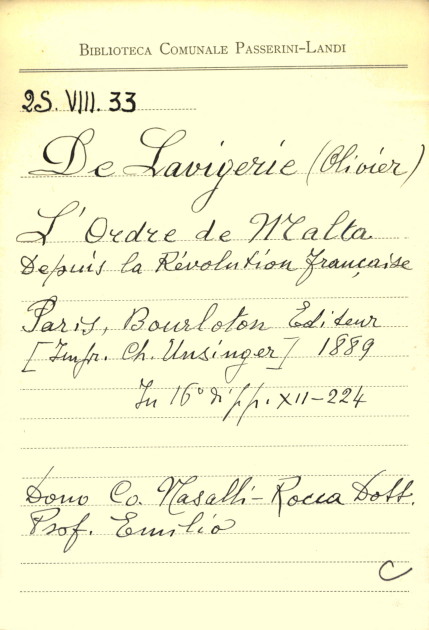 BIBLIOTECA COMUNALE PASSERINI-LANDI
2S. VIII. 33
De Lavigerie (Olivier)
L'Ordre de Malta
Depuis la Révolution française
Paris, Bourloton Editeur
[Impr. Ch. Unsinger] 1889
In 16° di pp. XII-224
Dono Co. Nasalli-Rocca Dott.
Prof. Emilio
C